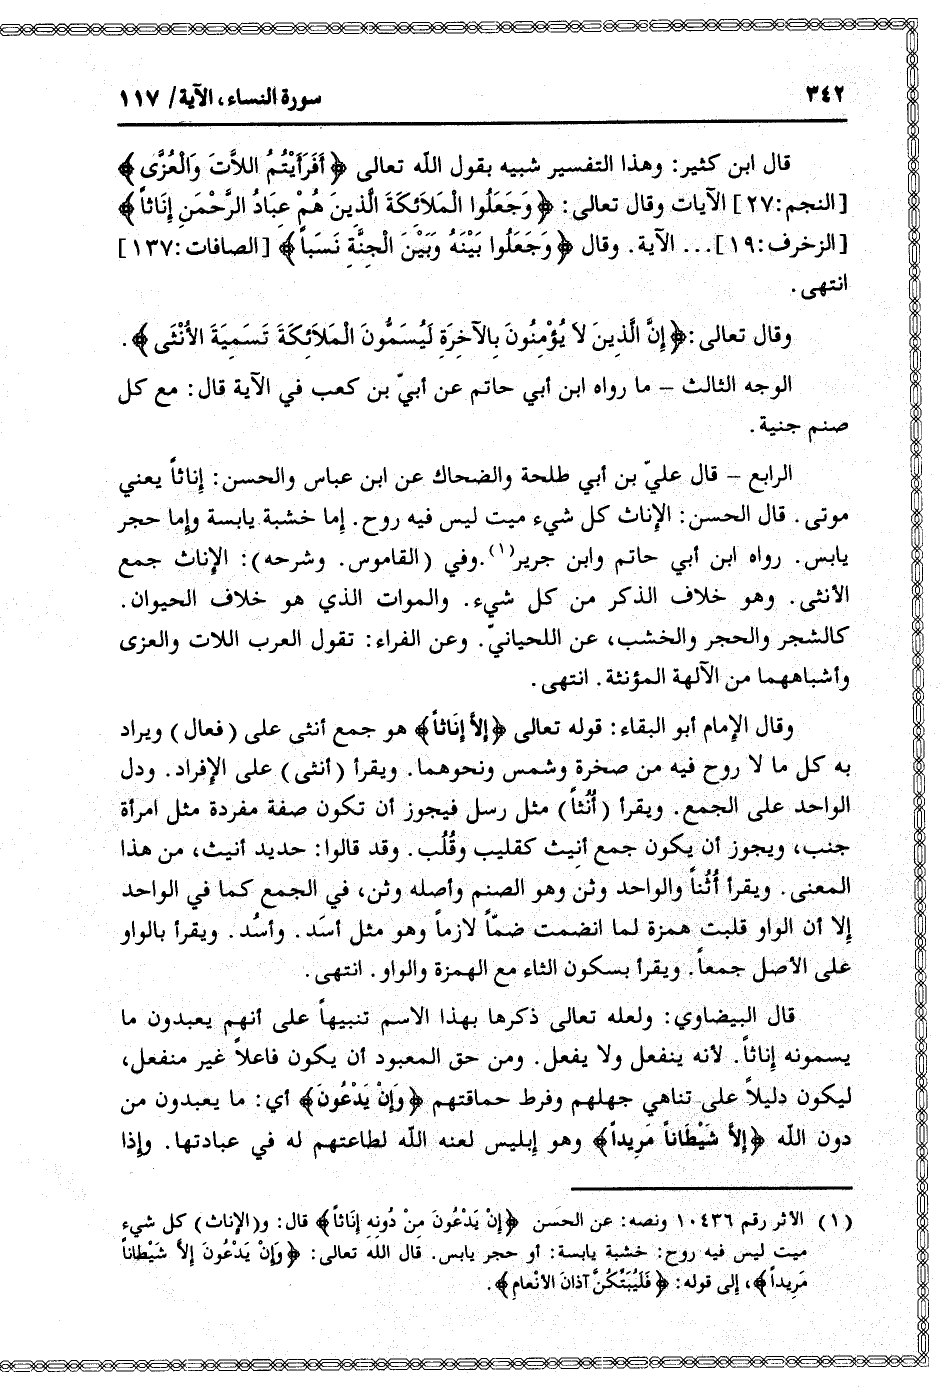 ٣٤٢ سورة النساء، الآية/ ١١٧
قال ابن كثير: وهذا التفسير شبيه بقول اللّه تعالى ﴿أَفَرَأَيْتُمُ اللاَّتَ وَالْعُزَّى﴾
[النجم:٢٧] الآيات وقال تعالى: ﴿وَجَعَلُوا الْمَلاَئِكَةَ الَّذِينَ هُمْ عِبَادُ الرَّحْمَنِ إِنَاثاً﴾
[الزخرف:١٩]... الآية. وقال ﴿وَجَعَلُوا بَيْنَهُ وَبَيْنَ الْجِنَّةِ نَسَباً﴾ [الصافات:١٣٧]
انتهى.
وقال تعالى:﴿إِنَّ الَّذِينَ لاَ يُؤْمِنُونَ بِالآخِرَةِ لَيُسَمُّونَ الْمَلاَئِكَةَ تَسْمِيَةَ الأُنْثَى﴾.
الوجه الثالث – ما رواه ابن أبي حاتم عن أبيّ بن كعب في الآية قال: مع كل
صنم جنية.
الرابع – قال عليّ بن أبي طلحة والضحاك عن ابن عباس والحسن: إِناثاً يعني
موتى. قال الحسن: الإناث كل شيء ميت ليس فيه روح. إما خشبة يابسة وإما حجر
يابس. رواه ابن أبي حاتم وابن جرير(١).وفي (القاموس. وشرحه): الإناث جمع
الأنثى. وهو خلاف الذكر من كل شيء. والموات الذي هو خلاف الحيوان.
كالشجر والحجر والخشب، عن اللحيانيّ. وعن الفراء: تقول العرب اللات والعزى
وأشباههما من الآلهة المؤنثة. انتهى.
وقال الإمام أبو البقاء: قوله تعالى ﴿إِلاَّ إِنَاثاً﴾ هو جمع أنثى على (فعال) ويراد
به كل ما لا روح فيه من صخرة وشمس ونحوهما. ويقرأ (أنثى) على الإفراد. ودل
الواحد على الجمع. ويقرأ (أُنُثاً) مثل رسل فيجوز أن تكون صفة مفردة مثل امرأة
جنب، ويجوز أن يكون جمع أنيث كقليب وقُلُب. وقد قالوا: حديد أنيث، من هذا
المعنى. ويقرأ أُثُناً والواحد وثن وهو الصنم وأصله وثن، في الجمع كما في الواحد
إلا أن الواو قلبت همزة لما انضمت ضمّاً لازماً وهو مثل أسَد. وأسُد. ويقرأ بالواو
على الأصل جمعاً. ويقرأ بسكون الثاء مع الهمزة والواو. انتهى.
قال البيضاوي: ولعله تعالى ذكرها بهذا الاسم تنبيهاً على أنهم يعبدون ما
يسمونه إناثاً. لأنه ينفعل ولا يفعل. ومن حق المعبود أن يكون فاعلاً غير منفعل،
ليكون دليلاً على تناهي جهلهم وفرط حماقتهم ﴿وَإِنْ يَدْعُونَ﴾ أي: ما يعبدون من
دون اللّه ﴿إِلاَّ شَيْطَاناً مَرِيداً﴾ وهو إبليس لعنه اللّه لطاعتهم له في عبادتها. وإذا
(١) الأثر رقم ١٠٤٣٦ ونصه: عن الحسن ﴿إِنْ يَدْعُونَ مِنْ دُونِهِ إِنَاثاً﴾ قال: و(الإناث) كل شيء
ميت ليس فيه روح: خشبة يابسة: أو حجر يابس. قال الله تعالى: ﴿وَإِنْ يَدْعُونَ إِلاَّ شَيْطَاناً
مَرِيداً﴾، إلى قوله: ﴿فَلَيُبَتِّكُنَّ آذَانَ الأَنْعامِ﴾.